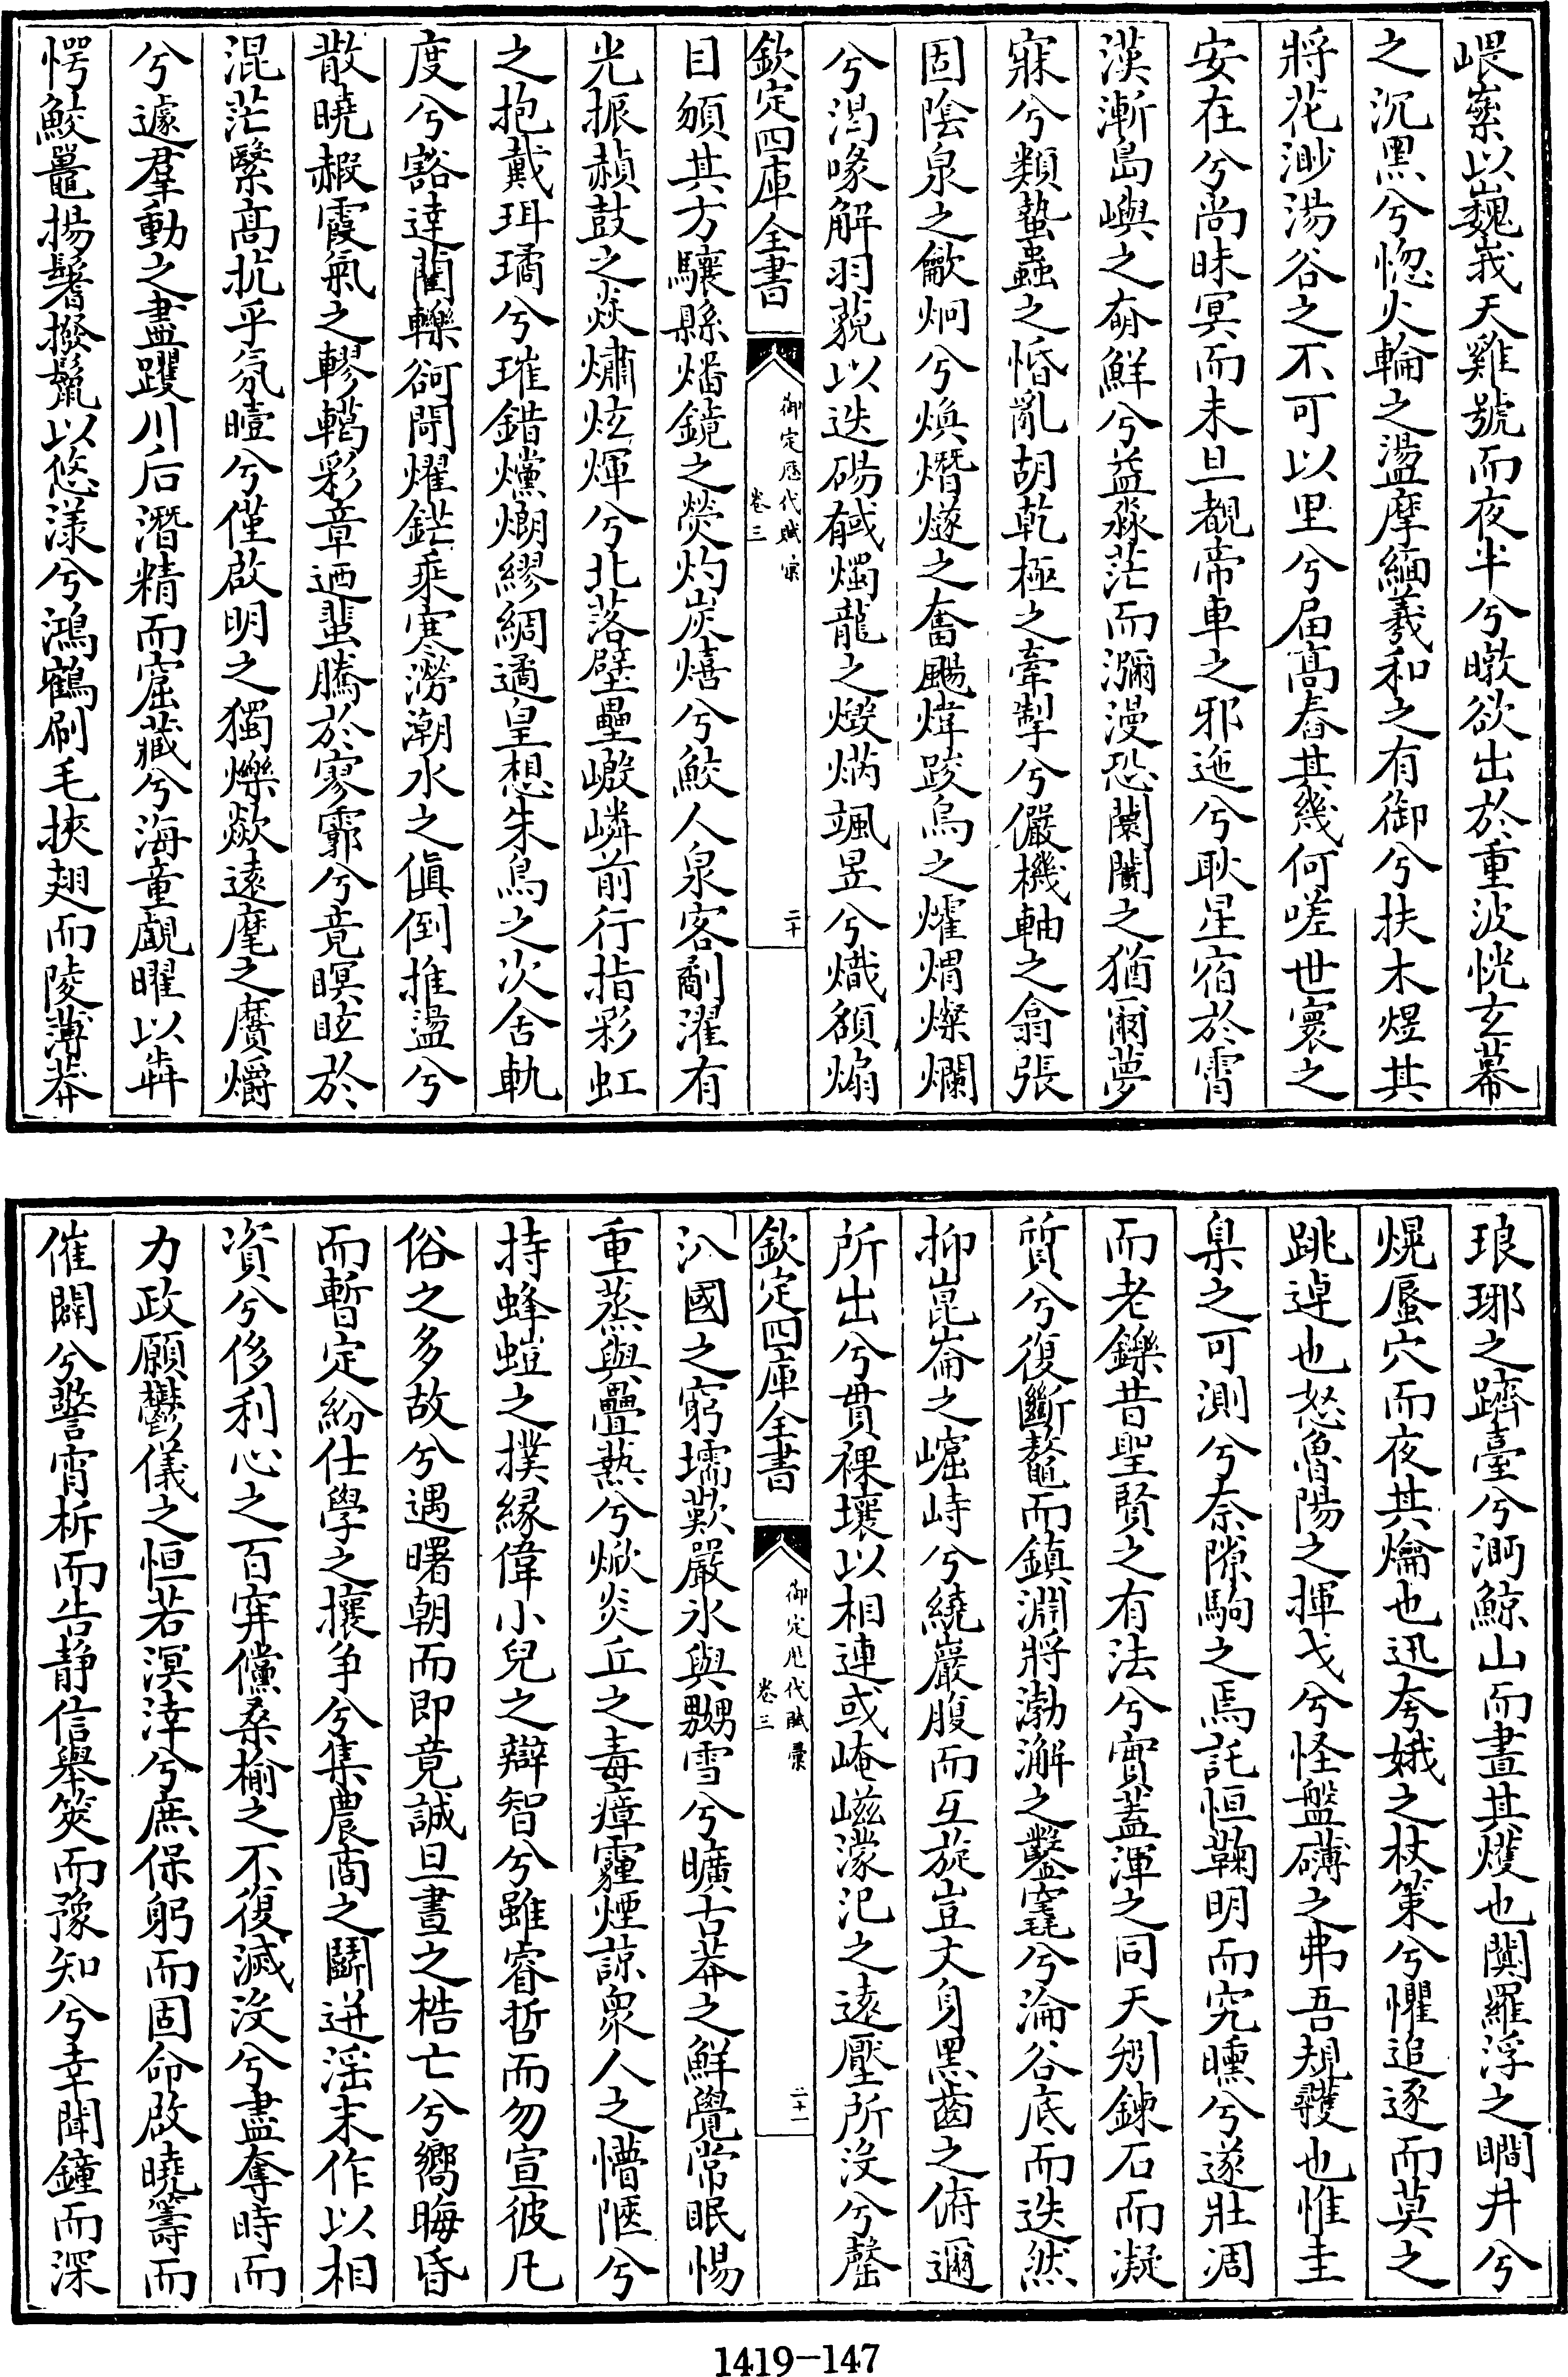 㟪嵏以巍峩天雞號而夜半兮暾欲出於重波恍玄幕
之沉黑兮惚火輪之盪摩緬羲和之有御兮扶木煜其
將花渺湯谷之不可以里兮届高舂其幾何嗟世寰之
安在兮尚昧冥而未旦覩帝車之邪迤兮耿星宿於霄
漢漸島嶼之有鮮兮益淼茫而瀰漫恐闤闠之猶爾夢
寐兮類蟄蟲之惛亂胡乾極之牽掣兮儼機軸之翕張
固陰泉之歊炯兮煥熸燧之奮颺煒踆烏之燿煟燦爛
兮渴喙解羽藐以迭碭馘燭龍之燬炳颯昱兮熾頟焔
欽定四庫全書
御定歷代賦彙
卷三
二十
目頒其方驤縣燔鏡之熒灼炭熺兮鮫人泉客剮濯有
光振赬鼓之焱熽炫煇兮北落壁壘巌嶙前行指彩虹
之抱戴珥璚兮璀錯爣烱繆綢遹皇想朱鳥之次舍軌
度兮豁達藺轢㣔閜燿鋩乘寒澇潮水之傎倒推盪兮
散曉赮霞氣之轇轕彩章迺蜚騰於寥霩兮竟瞑眩於
混茫繄高抗乎氛曀兮僅啟明之獨爍歘遠麾之鷹爝
兮遽羣動之盡躍川后潛精而窟藏兮海童覰曜以犇
愕鮫鼉揚鬐撥鬣以悠漾兮鴻鶴刷毛挾翅而陵薄莽
琅琊之躋臺兮泝鯨山而晝其熳也闃羅浮之瞷井兮
熀蜃穴而夜其爚也迅夸娥之杖策兮懼追逐而莫之
跳逴也怒魯陽之揮戈兮怪盤礴之弗吾規彠也惟圭
臬之可測兮奈隙駒之焉託恒鞠明而究曛兮遂壯凋
而老鑠昔聖賢之有法兮實蓋渾之同天矧鍊石而凝
質兮復斷鼇而鎮淵將渤澥之鑿竁兮淪谷底而迭然
抑崑崙之崛峙兮繞巖腹而互旋豈丈身黑齒之俯邇
所出兮貫裸壤以相連或崦嵫濛汜之遠壓所没兮罄
欽定四庫全書
御定歷代賦彙
卷三
二十一
汃國之窮壖欺嚴氷與嬲雪兮曠古莽之鮮覺常眠惕
重蒸與疊熱兮焮炎丘之毒瘴霾煙諒衆人之懵陋兮
持蜂螘之撲緣偉小兒之辯智兮雖睿哲而勿宣彼凡
俗之多故兮遇曙朝而即竟誠旦晝之梏亡兮嚮晦昏
而暫定紛仕學之攘争兮集農商之鬭迸淫末作以相
資兮侈利心之百穽儻桑榆之不復滅没兮盡奪時而
力政願鬱儀之恒若溟涬兮庶保躬而固命啟曉籌而
催闢兮警宵柝而告静信舉筴而豫知兮幸聞鐘而深
1419-147